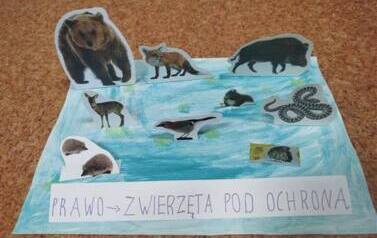 PRAWO→ZWIERZĘTA POD OCHRONĄ